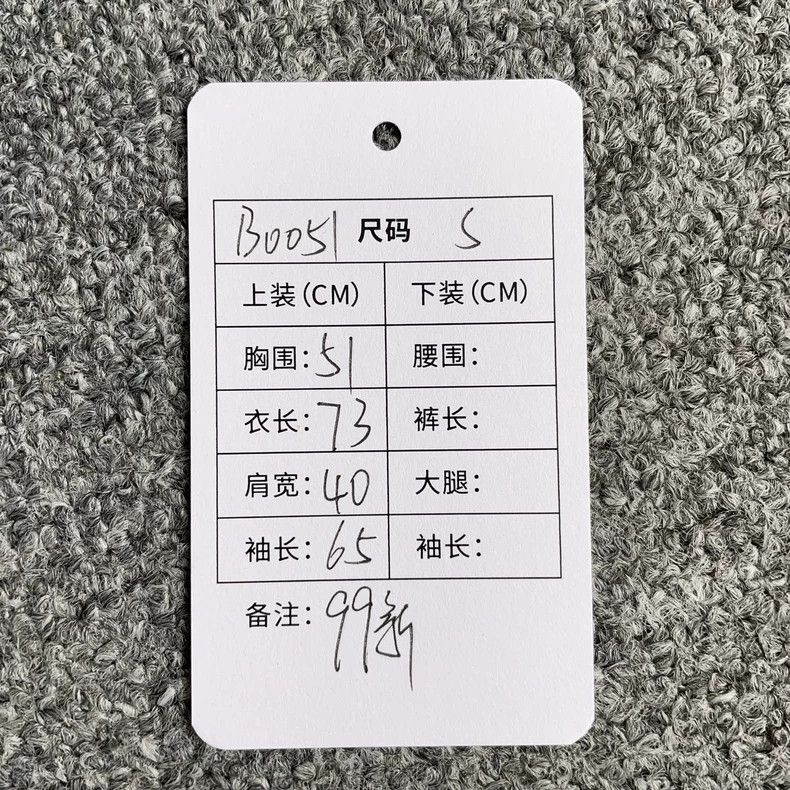 B0051 尺码 S
上装(CM) 下装(CM)
胸围:51 腰围:
衣长:73 裤长:
肩宽:40 大腿:
袖长:65 袖长:
备注:99新